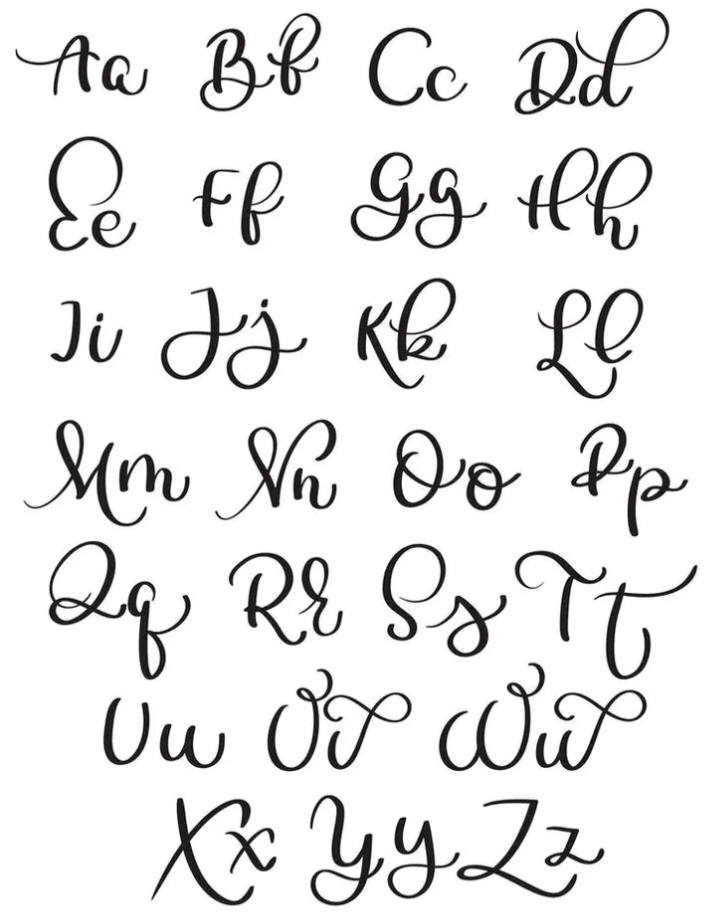 Aa Bb Cc Dd
Ee Ff Gg Hh
Ii Jj Kk Ll
Mm Nn Oo Pp
Qq Rr Ss Tt
Uu Vv Ww
Xx Yy Zz